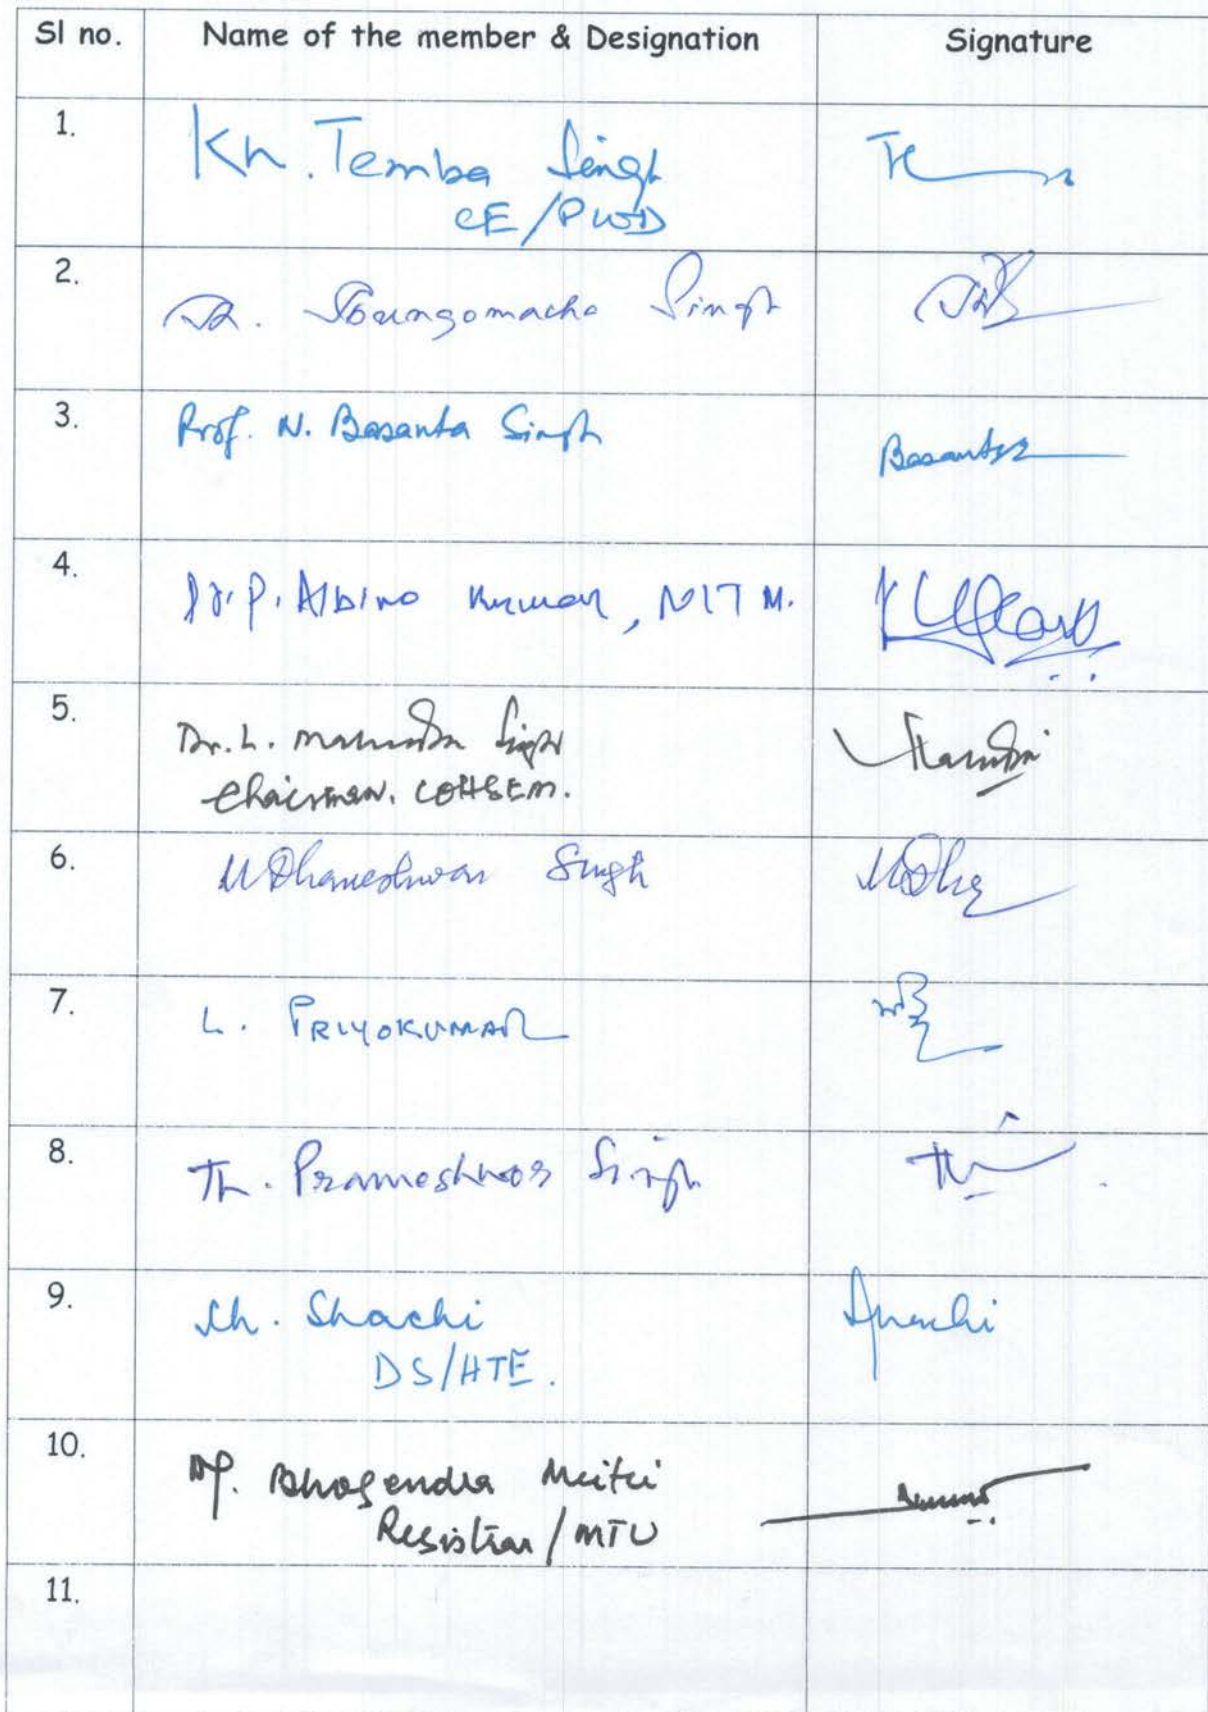 Sl no. Name of the member & Designation Signature
1. Kh. Temba Singh
CE/PWD
2. Dr. Ibungomacha Singh
3. Prof. N. Basanta Singh Basanta
4. Dr. P. Albino Kumar, NIT M.
5. Dr. L. Singh
Chairman, COHSEM.
6. M Dhaneshwar Singh
7. L. PRIYOKUMAR
8. Th. Prameshwor Singh
9. Ch. Shachi Shachi
DS/HTE.
10. Bhogendra Meitei
Registrar/MTU
11.